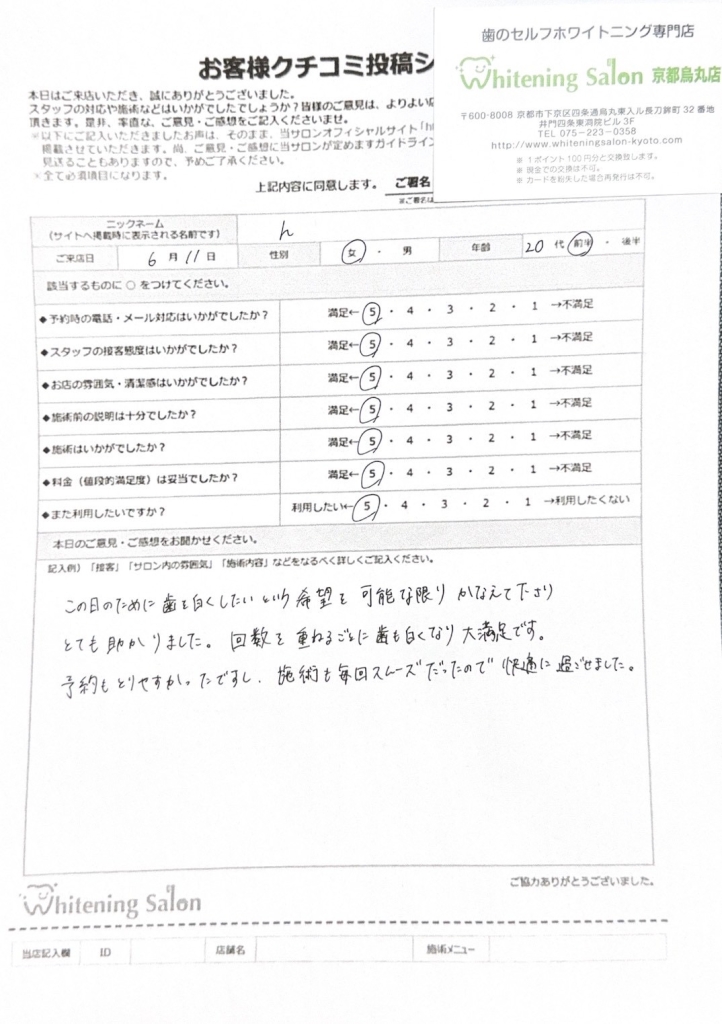 歯のセルフホワイトニング専門店
Whitening Salon 京都烏丸店
〒600-8008 京都市下京区四条通烏丸東入ル長刀鉾町32番地
井門四条東洞院ビル3F
TEL 075-223-0358
http://www.whiteningsalon-kyoto.com
※ 1ポイント100円分と交換致します。
※ 現金での交換は不可。
※ カードを紛失した場合再発行は不可。
お客様クチコミ投稿シ
本日はご来店いただき、誠にありがとうございました。
スタッフの対応や施術などはいかがでしたでしょうか？皆様のご意見は、よりよい店
頂きます。是非、率直な、ご意見・ご感想をご記入くださいませ。
※以下にご記入いただきましたお声は、そのまま、当サロンオフィシャルサイト「ht
掲載させていただきます。尚、ご意見・ご感想に当サロンが定めますガイドライン
見送ることもありますので、予めご了承ください。
※全て必須項目になります。
上記内容に同意します。 ご署名
※ご署名は
ニックネーム
(サイトへ掲載時に表示される名前です) h
ご来店日 6月11日 性別 女・男 年齢 20代 前半・後半
該当するものに○をつけてください。
◆予約時の電話・メール対応はいかがでしたか？ 満足←5・4・3・2・1→不満足
◆スタッフの接客態度はいかがでしたか？ 満足←5・4・3・2・1→不満足
◆お店の雰囲気・清潔感はいかがでしたか？ 満足←5・4・3・2・1→不満足
◆施術前の説明は十分でしたか？ 満足←5・4・3・2・1→不満足
◆施術はいかがでしたか？ 満足←5・4・3・2・1→不満足
◆料金（値段的満足度）は妥当でしたか？ 満足←5・4・3・2・1→不満足
◆また利用したいですか？ 利用したい←5・4・3・2・1→利用したくない
本日のご意見・ご感想をお聞かせください。
記入例）「接客」「サロン内の雰囲気」「施術内容」などをなるべく詳しくご記入ください。
この日のために歯を白くしたいという希望を可能な限りかなえて下さり
とても助かりました。回数を重ねるごとに歯も白くなり大満足です。
予約もとりやすかったですし、施術も毎回スムーズだったので快適に過ごせました。
ご協力ありがとうございました。
Whitening Salon
当店記入欄 ID 店舗名 施術メニュー